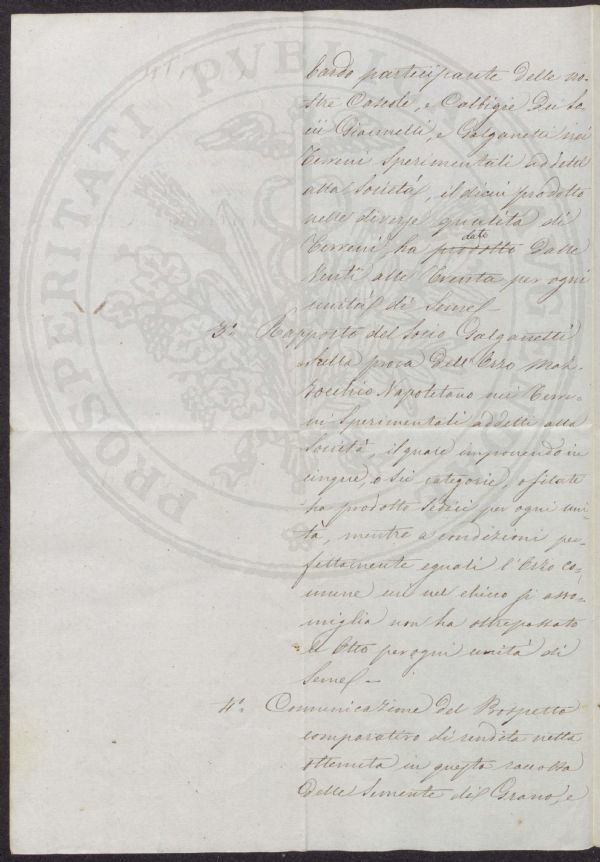 bardo participante delle no-
stre Casole, e Calbigie dei So-
cii Giannelli, e Galganetti nei
Terreni Sperimentali addetti
alla Società, il di cui prodotto
nelle diverse qualità di
Terreni, ha prodotto dato dalle
Venti alle Trenta per ogni
unità di Seme -
3º Rapporto del Socio Galganetti
sulla prova dell'Orzo
Napoletano nei Terre-
ni Sperimentali addetti alla
Società, il quale imponendo in
cinque o sei categorie, o filate
ha prodotto Sedici per ogni uni-
tà, mentre a condizioni per-
fettamente eguali l'Orzo co-
mune cui nel chicco si asso-
miglia non ha oltrepassato
l'Otto per ogni unità di
Seme -
4º Comunicazione del Prospetto
comparativo di rendita netta
ottenuta in questa raccolta
delle Semente di Grano, e
PROSPERITATI PVBLICAE